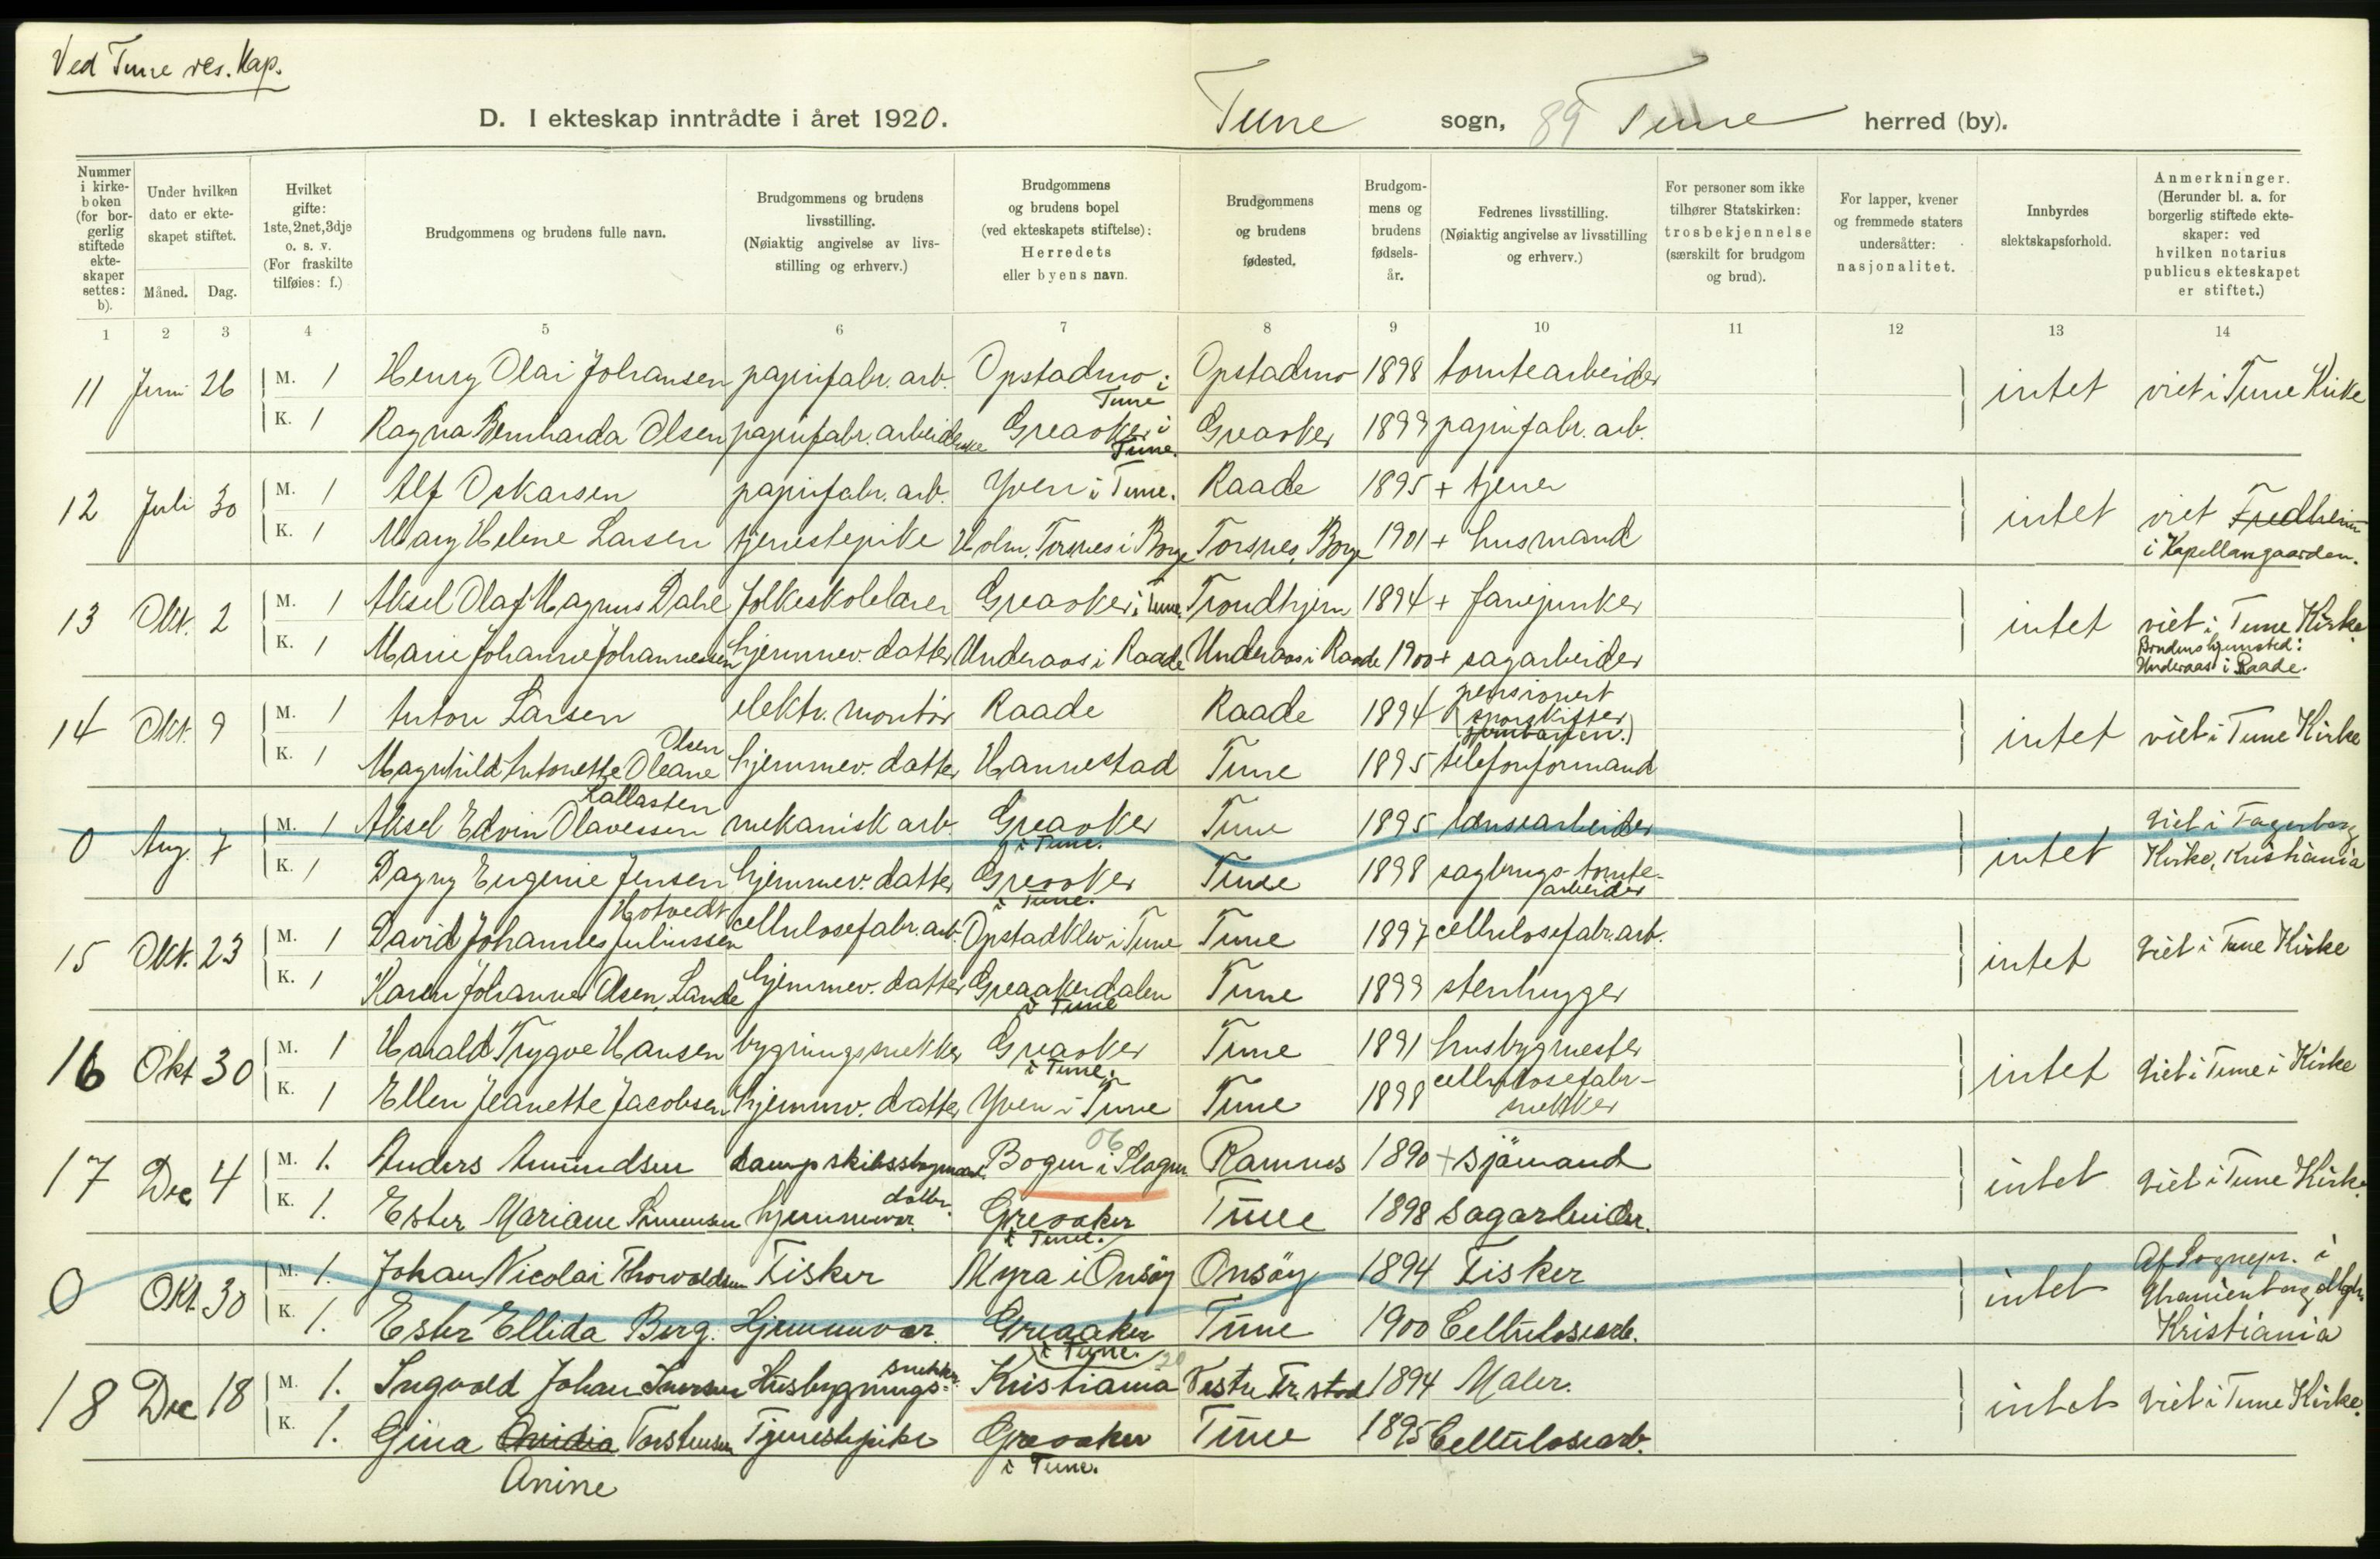 Ved Tune res. Kap.
D. I ekteskap inntrådte i året 1920. Tune sogn, 89 Tune herred (by).
Nummer i kirkeboken (for borgerlig stiftede ekteskaper settes: b).
Under hvilken dato er ekteskapet stiftet.
Måned. Dag.
Hvilket gifte: 1ste, 2net, 3dje o. s. v. (For fraskilte tilføies: f.)
Brudgommens og brudens fulle navn.
Brudgommens og brudens livsstilling. (Nøiaktig angivelse av livsstilling og erhverv.)
Brudgommens og brudens bopel (ved ekteskapets stiftelse): Herredets eller byens navn.
Brudgommens og brudens fødested.
Brudgommens og brudens fødselsår.
Fedrenes livsstilling. (Nøiaktig angivelse av livsstilling og erhverv.)
For personer som ikke tilhører Statskirken: trosbekjennelse (særskilt for brudgom og brud).
For lapper, kvener og fremmede staters undersåtter: nasjonalitet.
Innbyrdes slektskapsforhold.
Anmerkninger. (Herunder bl. a. for borgerlig stiftede ekteskaper: ved hvilken notarius publicus ekteskapet er stiftet.)
1 2 3 4 5 6 7 8 9 10 11 12 13 14
11 Juni 26 M. 1 Henry Olai Johansen papirfabr. arb. Opstadmo i Tune Opstadmo 1898 tomtearbeider intet viet i Tune Kirke
K. 1 Ragna Bernharda Olsen papirfabr. arbeiderske Greaaker i Tune. Greaaker 1899 papirfabr. arb.
12 Juli 30 M. 1 Alf Oskarsen papirfabr. arb. Yven i Tune. Raade 1895 + tjener intet viet Fredheim i Kapellangaarden.
K. 1 Mary Helene Larsen tjenestepike Holm, Torsnes i Borge Torsnes, Borge 1901 + husmand
13 Okt. 2 M. 1 Aksel Olaf Magnus Dahl folkeskolelærer Greaaker i Tune. Trondhjem 1894 + fanejunker intet viet i Tune Kirke. Brudens hjemsted: Underaas i Raade.
K. 1 Marie Johanne Johannessen hjemmev. datter Underaas i Raade Underaas i Raade 1900 + sagarbeider
14 Okt. 9 M. 1 Anton Larsen elektr. montør Raade Raade 1894 pensionert (sporskifter jernbanen.) intet viet i Tune Kirke
K. 1 Magnhild Antonette Oleane Olsen hjemmev. datter Hannestad Tune 1895 telefonformand
0 Aug. 7 M. 1 Aksel Edvin Olavessen Kallasten mekanisk arb. Greaaker i Tune. Tune 1895 lænsearbeider intet Viet i Fagerborg Kirke, Kristiania
K. 1 Dagny Eugenie Jensen hjemmev. datter Greaaker i Tune. Tune 1898 sagbrugs-tomte-arbeider
15 Okt. 23 M. 1 David Johannes Juliussen Hotvedt cellulosefabr. arb. Opstadklev i Tune Tune 1897 cellulosefabr. arb. intet Viet i Tune Kirke
K. 1 Karen Johanne Olsen, Lande hjemmev. datter Greaakerdalen i Tune Tune 1899 stenhugger
16 Okt 30 M. 1 Harald Trygve Hansen bygningssnekker Greaaker i Tune. Tune 1891 husbygmester intet Viet i Tune i Kirke
K. 1 Ellen Jeanette Jacobsen hjemmv. datter Yven i Tune Tune 1898 cellulosefabr-snekker
17 Dec 4 M. 1. Anders Amundsen 06 Bogen i Slagen Ramnes 1890 + Sjömand intet Viet i Tune Kirke.
K. 1. Ester Mariane Simensen hjemmevær. datter. Greaaker i Tune. Tune 1898 Sagarbeider.
0 Okt. 30 M. 1. Johan Nicolai Thorvaldsen Fisker Myra i Onsöy Onsöy 1894 Fisker intet Af Sognepr. i Uranienborg Kristiania
K. 1. Ester Ellida Berg. Hjemmevær. Greaaker i Tune. Tune 1900 Cellulosearb.
18 Dec 18 M. 1. Ingvald Johan Iversen Husbygnings-snekker. 20 Kristiania Vestre Fr.stad 1894 Maler. intet Viet i Tune Kirke.
K. 1. Gina Torstensen Tjenestepike Greaaker i Tune. Tune 1895 Cellulosearb.
Anine